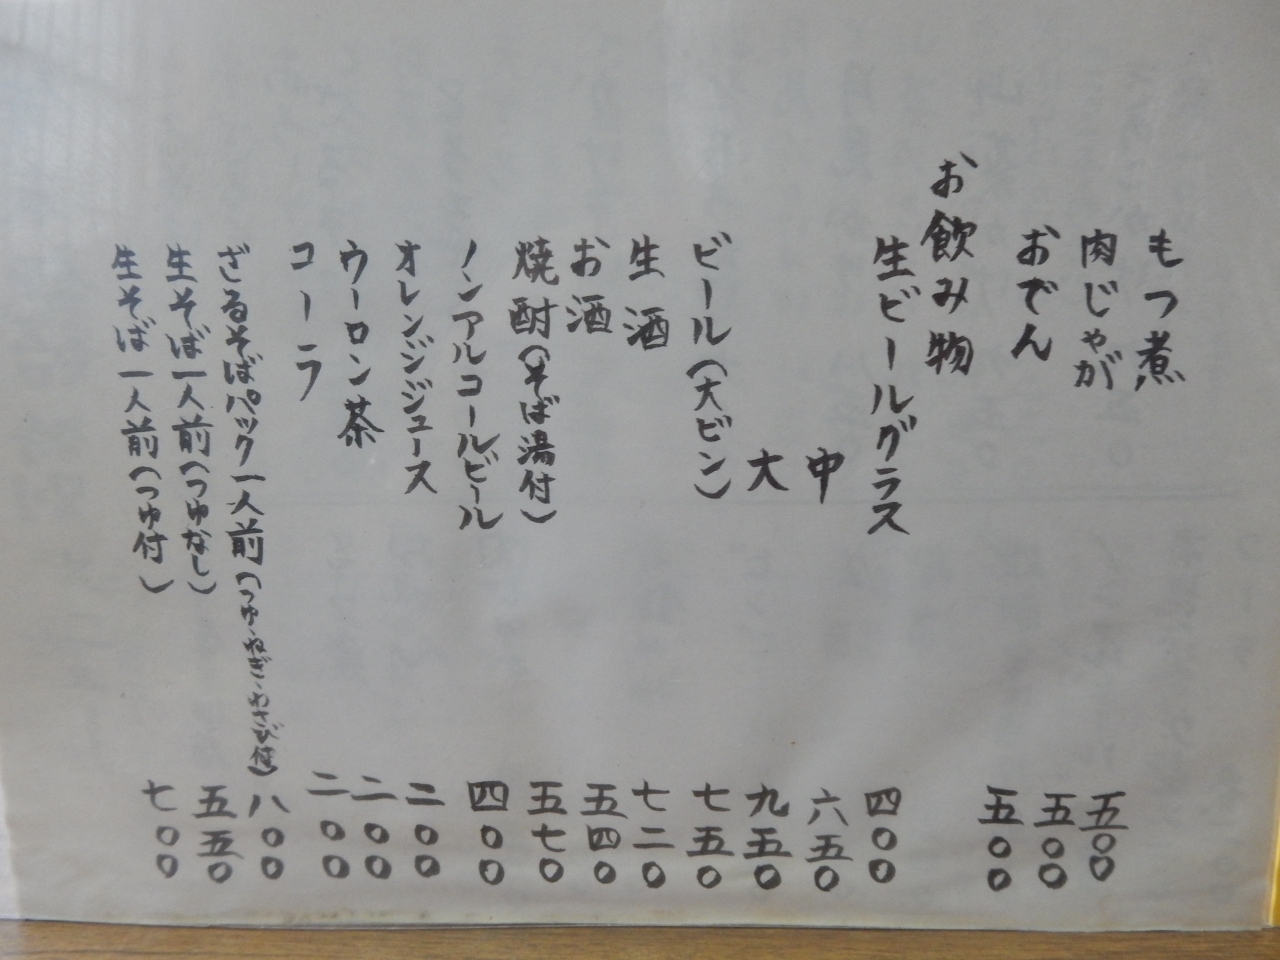 もつ煮 五〇〇
肉じゃが 五〇〇
おでん 五〇〇
お飲み物
生ビールグラス 四〇〇
中 六五〇
大 九五〇
ビール(大ビン) 七五〇
生酒 七二〇
お酒 五四〇
焼酎(そば湯付) 五七〇
ノンアルコールビール 四〇〇
オレンジジュース 二〇〇
ウーロン茶 二〇〇
コーラ 二〇〇
ざるそばパック一人前(つゆ、ねぎ、わさび付) 八〇〇
生そば一人前(つゆなし) 五五〇
生そば一人前(つゆ付) 七〇〇